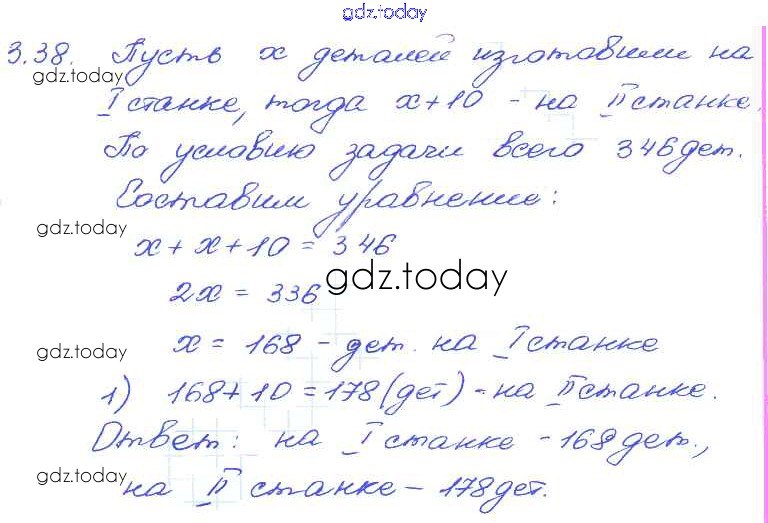 gdz.today
3.38. Пусть x деталей изготовили на
gdz.today
I станке, тогда x+10 - на II станке.
По условию задачи всего 346 дет.
Составим уравнение:
gdz.today
x + x + 10 = 346
gdz.today
2x = 336
x = 168 - дет. на I станке
gdz.today
1) 168 + 10 = 178 (дет) - на II станке.
Ответ: на I станке - 168 дет.,
gdz.today
на II станке - 178 дет.